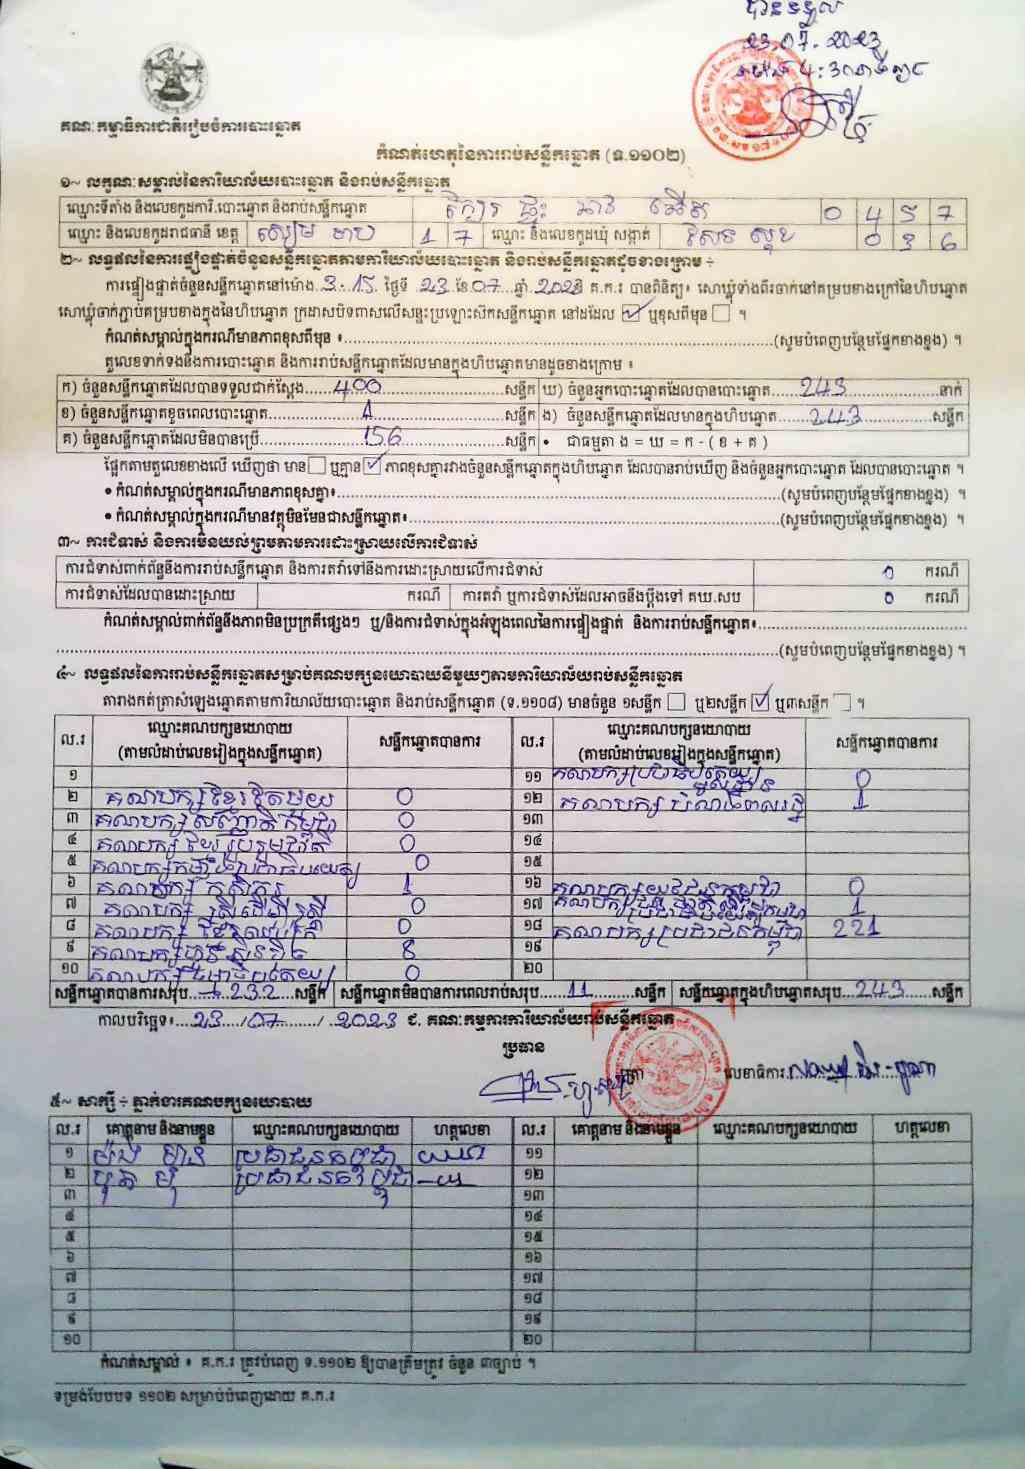 បានទទួល
23.07.2023
គណៈកម្មាធិការជាតិរៀបចំការបោះឆ្នោត
កំណត់ហេតុនៃការរាប់សន្លឹកឆ្នោត (ទ.១១០២)
១~ លក្ខណៈសម្គាល់នៃការិយាល័យបោះឆ្នោត និងរាប់សន្លឹកឆ្នោត
ឈ្មោះទីតាំង និងលេខកូដការិ.បោះឆ្នោត និងរាប់សន្លឹកឆ្នោត 0 4 5 7
ឈ្មោះ និងលេខកូដរាជធានី ខេត្ត សៀមរាប 1 7 ឈ្មោះ និងលេខកូដឃុំ សង្កាត់ 0 3 6
២~ លទ្ធផលនៃការផ្ទៀងផ្ទាត់ចំនួនសន្លឹកឆ្នោតតាមការិយាល័យបោះឆ្នោត និងរាប់សន្លឹកឆ្នោតដូចខាងក្រោម ÷
ការផ្ទៀងផ្ទាត់ចំនួនសន្លឹកឆ្នោតនៅម៉ោង 3-15 ថ្ងៃទី 23 ខែ 07 ឆ្នាំ 2023 គ.ក.រ បានពិនិត្យ៖ សោឃ្លុំទាំងពីរចាក់នៅគម្របខាងក្រៅនៃហិបឆ្នោត
សោឃ្លុំចាក់ភ្ជាប់គម្របខាងក្នុងនៃហិបឆ្នោត ក្រដាសបិទពាសលើសន្ទះប្រឡោះស៊កសន្លឹកឆ្នោត នៅដដែល ☑ ឬខុសពីមុន ☐ ។
កំណត់សម្គាល់ក្នុងករណីមានភាពខុសពីមុន ៖ (សូមបំពេញបន្ថែមផ្នែកខាងខ្នង) ។
តួលេខទាក់ទងនឹងការបោះឆ្នោត និងការរាប់សន្លឹកឆ្នោតដែលមានក្នុងហិបឆ្នោតមានដូចខាងក្រោម ៖
ក) ចំនួនសន្លឹកឆ្នោតដែលបានទទួលជាក់ស្តែង 400 សន្លឹក ឃ) ចំនួនអ្នកបោះឆ្នោតដែលបានបោះឆ្នោត 243 នាក់
ខ) ចំនួនសន្លឹកឆ្នោតខូចពេលបោះឆ្នោត 1 សន្លឹក ង) ចំនួនសន្លឹកឆ្នោតដែលមានក្នុងហិបឆ្នោត 243 សន្លឹក
គ) ចំនួនសន្លឹកឆ្នោតដែលមិនបានប្រើ 156 សន្លឹក • ជាធម្មតា ង = ឃ = ក - ( ខ + គ )
ផ្អែកតាមតួលេខខាងលើ ឃើញថា មាន ☐ ឬគ្មាន ☑ ភាពខុសគ្នារវាងចំនួនសន្លឹកឆ្នោតក្នុងហិបឆ្នោត ដែលបានរាប់ឃើញ និងចំនួនអ្នកបោះឆ្នោត ដែលបានបោះឆ្នោត ។
• កំណត់សម្គាល់ក្នុងករណីមានភាពខុសគ្នា៖ (សូមបំពេញបន្ថែមផ្នែកខាងខ្នង) ។
• កំណត់សម្គាល់ក្នុងករណីមានវត្ថុមិនមែនជាសន្លឹកឆ្នោត៖ (សូមបំពេញបន្ថែមផ្នែកខាងខ្នង) ។
៣~ ការជំទាស់ និងការមិនយល់ព្រមតាមការដោះស្រាយលើការជំទាស់
ការជំទាស់ពាក់ព័ន្ធនឹងការរាប់សន្លឹកឆ្នោត និងការតវ៉ាទៅនឹងការដោះស្រាយលើការជំទាស់ 0 ករណី
ការជំទាស់ដែលបានដោះស្រាយ ករណី ការតវ៉ា ឬការជំទាស់ដែលអាចនឹងប្តឹងទៅ គឃ.សប 0 ករណី
កំណត់សម្គាល់ពាក់ព័ន្ធនឹងភាពមិនប្រក្រតីផ្សេងៗ ឬ/និងការជំទាស់ក្នុងអំឡុងពេលនៃការផ្ទៀងផ្ទាត់ និងការរាប់សន្លឹកឆ្នោត៖
(សូមបំពេញបន្ថែមផ្នែកខាងខ្នង) ។
៤~ លទ្ធផលនៃការរាប់សន្លឹកឆ្នោតសម្រាប់គណបក្សនយោបាយនីមួយៗតាមការិយាល័យរាប់សន្លឹកឆ្នោត
តារាងកត់ត្រាសំឡេងឆ្នោតតាមការិយាល័យបោះឆ្នោត និងរាប់សន្លឹកឆ្នោត (ទ.១១០៨) មានចំនួន ១សន្លឹក ☐ ឬ២សន្លឹក ☑ ឬ៣សន្លឹក ☐ ។
ល.រ ឈ្មោះគណបក្សនយោបាយ (តាមលំដាប់លេខរៀងក្នុងសន្លឹកឆ្នោត) សន្លឹកឆ្នោតបានការ ល.រ ឈ្មោះគណបក្សនយោបាយ (តាមលំដាប់លេខរៀងក្នុងសន្លឹកឆ្នោត) សន្លឹកឆ្នោតបានការ
១ ១១ គណបក្សប្រជាធិបតេយ្យមូលដ្ឋាន 0
២ គណបក្សខ្មែរតែមួយ 0 ១២ គណបក្ស 1
៣ គណបក្ស 0 ១៣
៤ គណបក្ស 0 ១៤
៥ គណបក្សកម្លាំងប្រជាធិបតេយ្យ 0 ១៥
៦ គណបក្ស កសិករ 1 ១៦ គណបក្សយុវជនកម្ពុជា 0
៧ គណបក្ស ស្ត្រីដើម្បីស្ត្រី 0 ១៧ 1
៨ គណបក្ស 0 ១៨ គណបក្សប្រជាជនកម្ពុជា 221
៩ គណបក្សហ្វ៊ុនស៊ិនប៉ិច 8 ១៩
១០ គណបក្ស ធម្មាធិបតេយ្យ 0 ២០
សន្លឹកឆ្នោតបានការសរុប 232 សន្លឹក សន្លឹកឆ្នោតមិនបានការពេលរាប់សរុប 11 សន្លឹក សន្លឹកឆ្នោតក្នុងហិបឆ្នោតសរុប 243 សន្លឹក
កាលបរិច្ឆេទ៖ 23/07/2023 ជ. គណៈកម្មការការិយាល័យរាប់សន្លឹកឆ្នោត
ប្រធាន
លេខាធិការ
៥~ សាក្សី ÷ ភ្នាក់ងារគណបក្សនយោបាយ
ល.រ គោត្តនាម និងនាមខ្លួន ឈ្មោះគណបក្សនយោបាយ ហត្ថលេខា ល.រ គោត្តនាម និងនាមខ្លួន ឈ្មោះគណបក្សនយោបាយ ហត្ថលេខា
១ ប្រជាជនកម្ពុជា ១១
២ ប្រជាជនកម្ពុជា ១២
៣ ១៣
៤ ១៤
៥ ១៥
៦ ១៦
៧ ១៧
៨ ១៨
៩ ១៩
១០ ២០
កំណត់សម្គាល់ ៖ គ.ក.រ ត្រូវបំពេញ ទ.១១០២ ឱ្យបានត្រឹមត្រូវ ចំនួន ៣ច្បាប់ ។
ទម្រង់បែបបទ ១១០២ សម្រាប់បំពេញដោយ គ.ក.រ